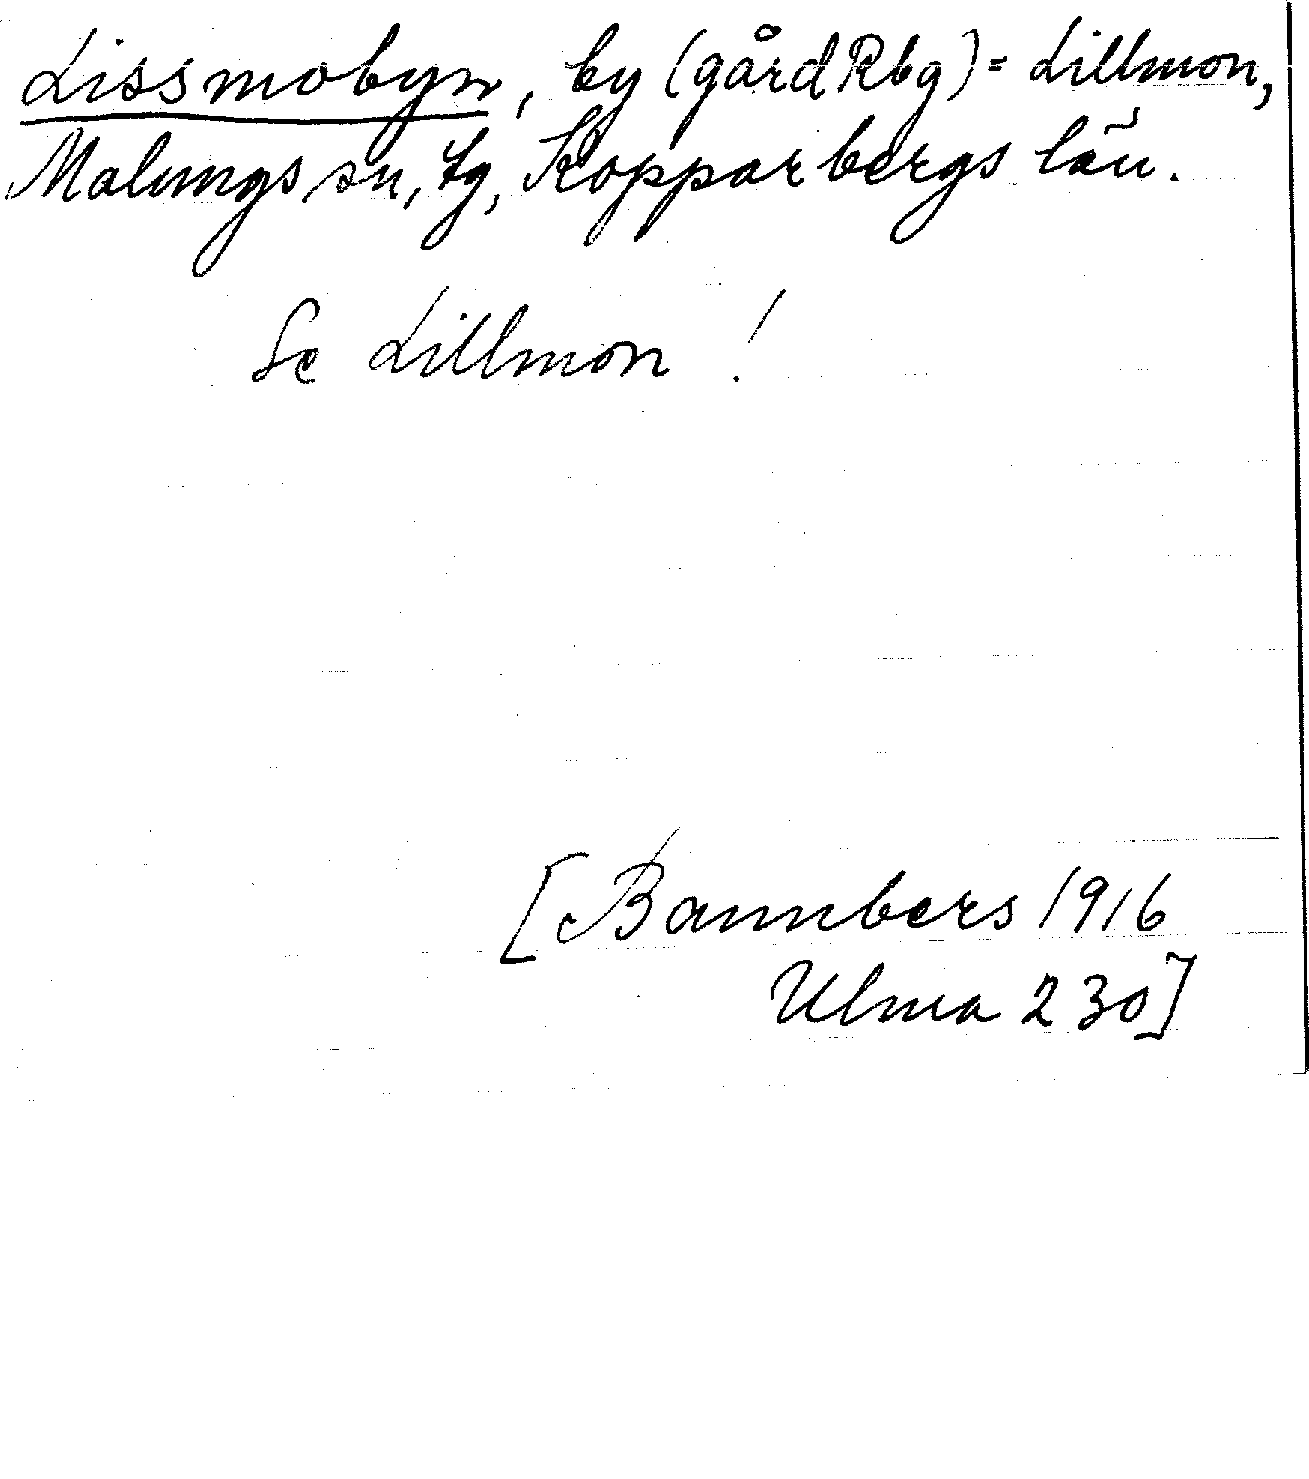 Lissmobyn, by (gård Rbg) = Lillmon,
Malungs sn, tg, Kopparbergs län.
Se Lillmon !
[Bannbers 1916
Ulma 230]